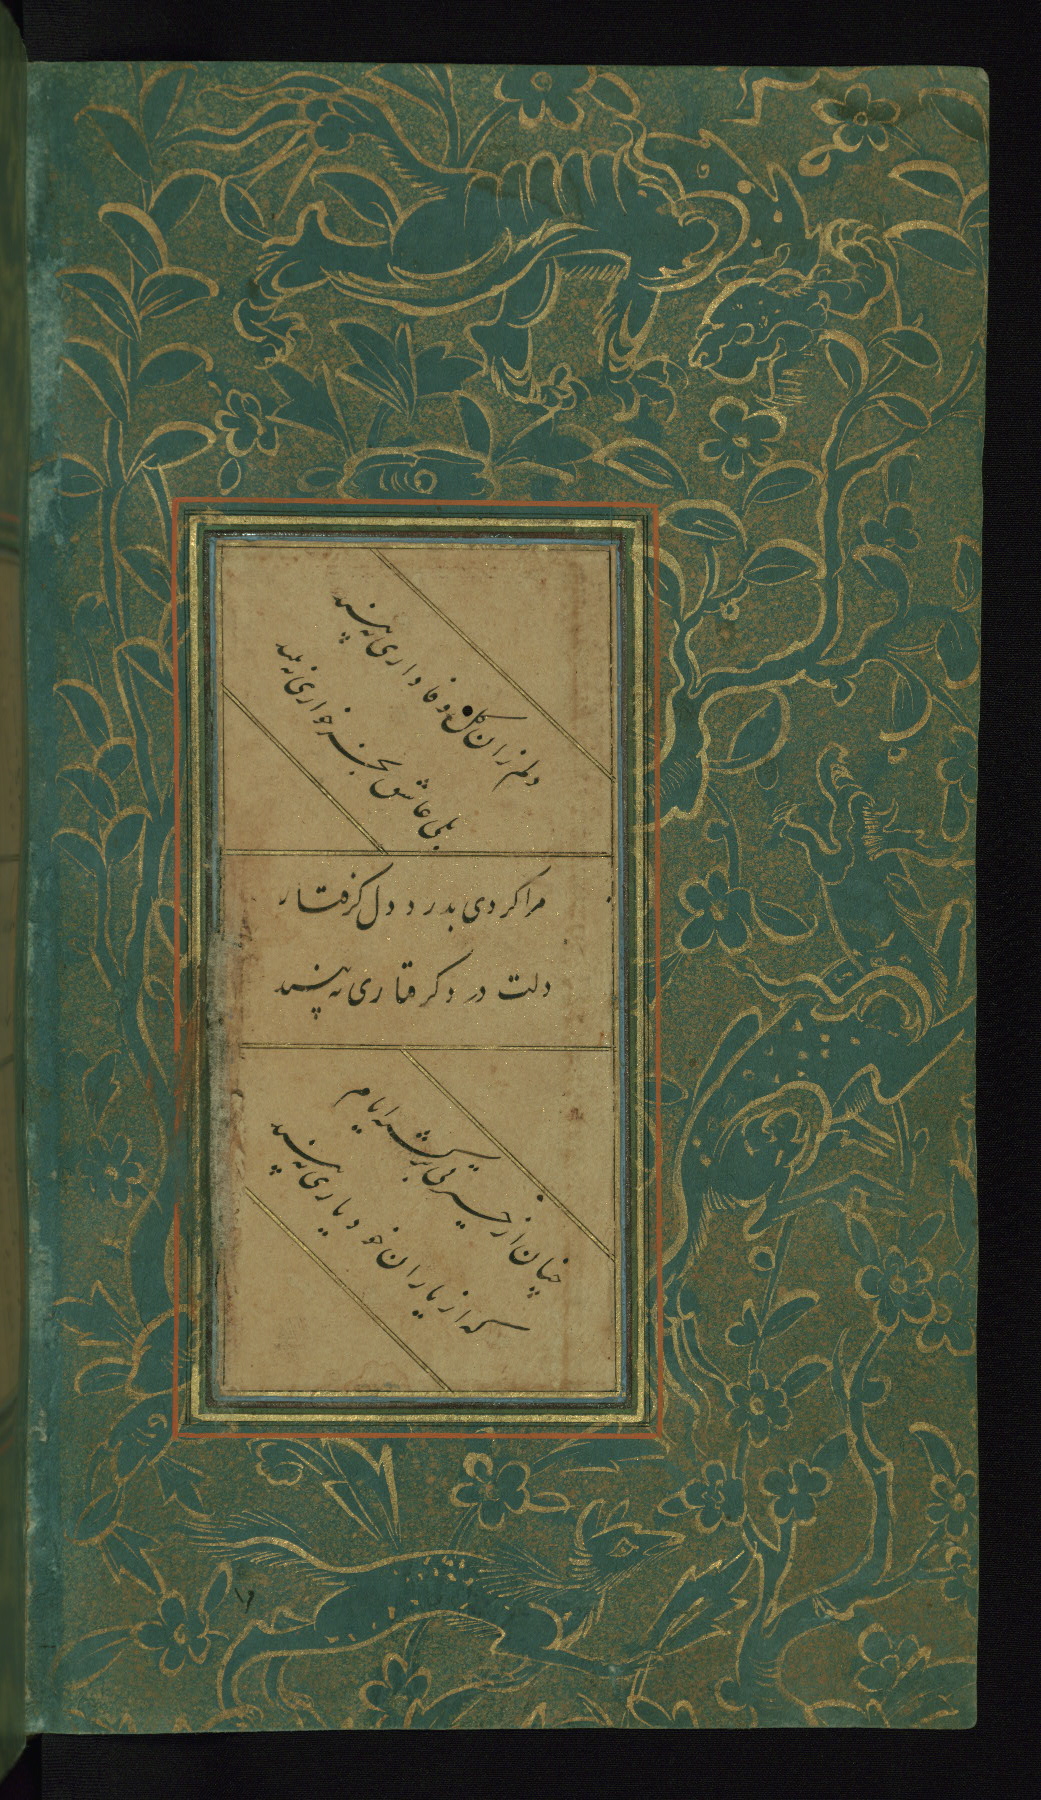 دلم زان گل وفاداری نه بیند
بلی عاشق بجز خواری نه بیند
مرا کردی بدرد دل گرفتار
دلت درد گرفتاری نه بیند
چنان از خسرتی برگشه ایام
که از یاران خود یاری نه بیند
۱۶